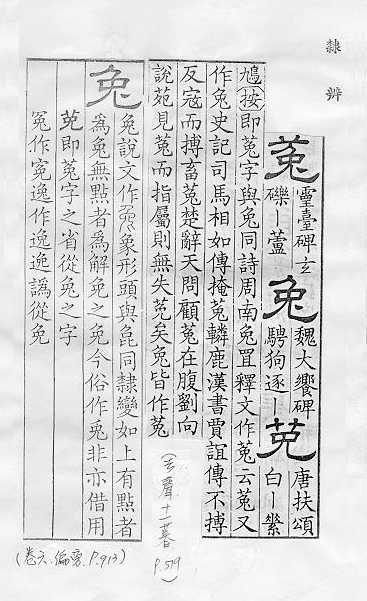 隸辨
菟 靈臺碑玄
礫丨蘆
兔 魏大饗碑
騁狗逐丨
莬 唐扶頌
白丨縏
鳩按即菟字與兔同詩周南兔罝釋文作菟云菟又
作兔史記司馬相如傳掩菟轔鹿漢書賈誼傳不搏
反寇而搏畜菟楚辭天問顧菟在腹劉向
說苑見菟而指屬則無失菟矣兔皆作菟
(去聲十一暮 P.519)
兔
兔說文作象形頭與㲋同隸變如上有點者
為兔無點者為解免之免今俗作兎非亦借用
莬即菟字之省從兔之字
冤作寃逸作逸逸譌從免
(卷六.偏旁.P.913)